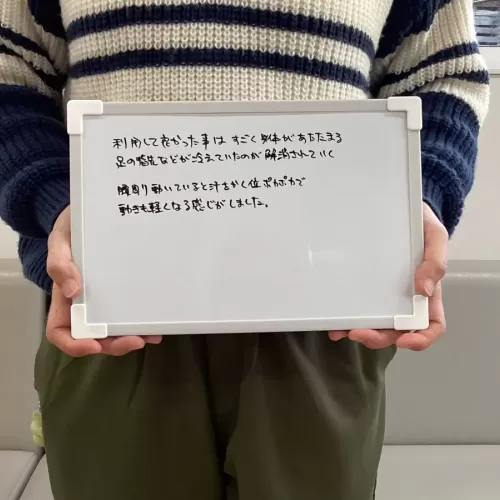 利用して良かった事は すごく身体があたたまる
足の指先などが冷えていたのが 解消されていく
腰周り動いていると汗をかく位ポカポカで
動きも軽くなる感じがしました。